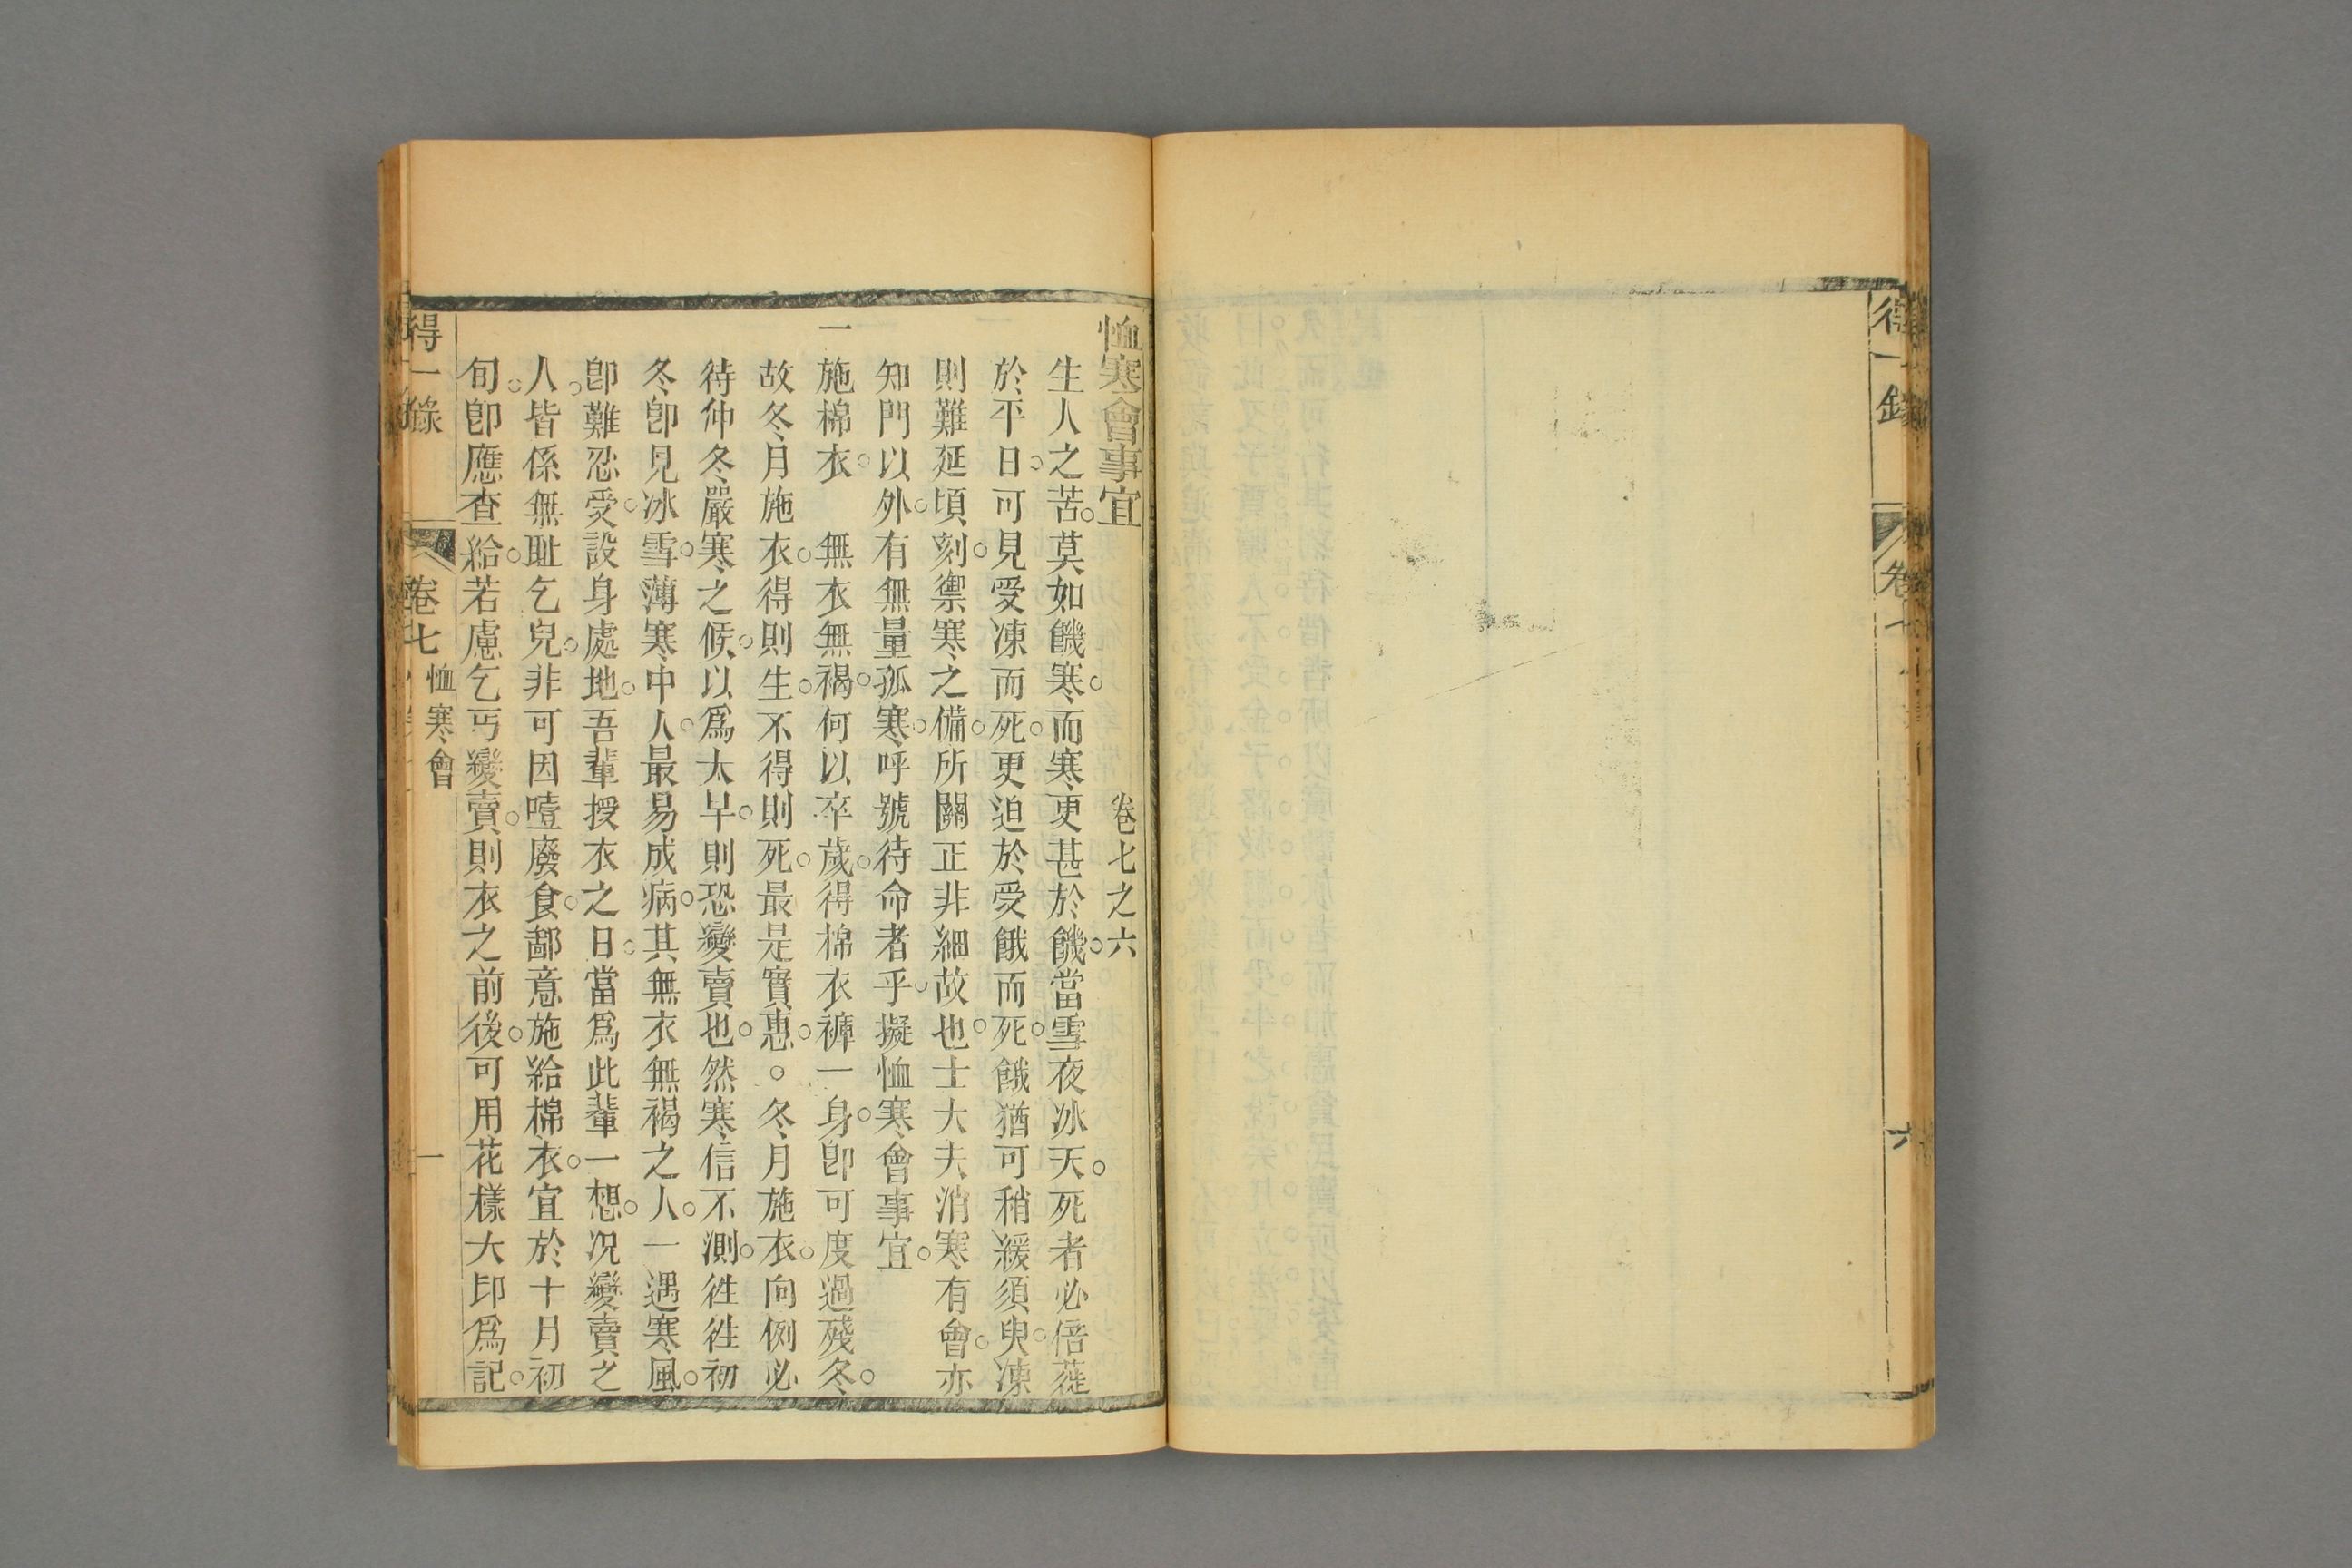 得一錄 卷七 六
恤寒會事宜 卷七之六
生人之苦。莫如饑寒。而寒更甚於饑。當雪夜冰天。死者必倍蓰
於平日。可見受凍而死。更迫於受餓而死。餓猶可稍緩須臾。凍
則難延頃刻。禦寒之備。所關正非細故也。士大夫消寒有會。亦
知門以外。有無量孤寒。呼號待命者乎。擬恤寒會事宜。
一施棉衣。 無衣無褐。何以卒歲。得棉衣褲一身。卽可度過殘冬。
故冬月施衣。得則生。不得則死。最是實惠。○冬月施衣。向例必
待仲冬嚴寒之候。以爲太早。則恐變賣也。然寒信不測。往往初
冬卽見冰雪。薄寒中人。最易成病。其無衣無褐之人。一遇寒風。
卽難忍受。設身處地。吾輩授衣之日。當爲此輩一想。況變賣之
人。皆係無耻乞兒。非可因噎廢食。鄙意施給棉衣。宜於十月初
旬。卽應查給。若慮乞丐變賣。則衣之前後。可用花樣大印爲記。
得一錄 卷七 恤寒會 一